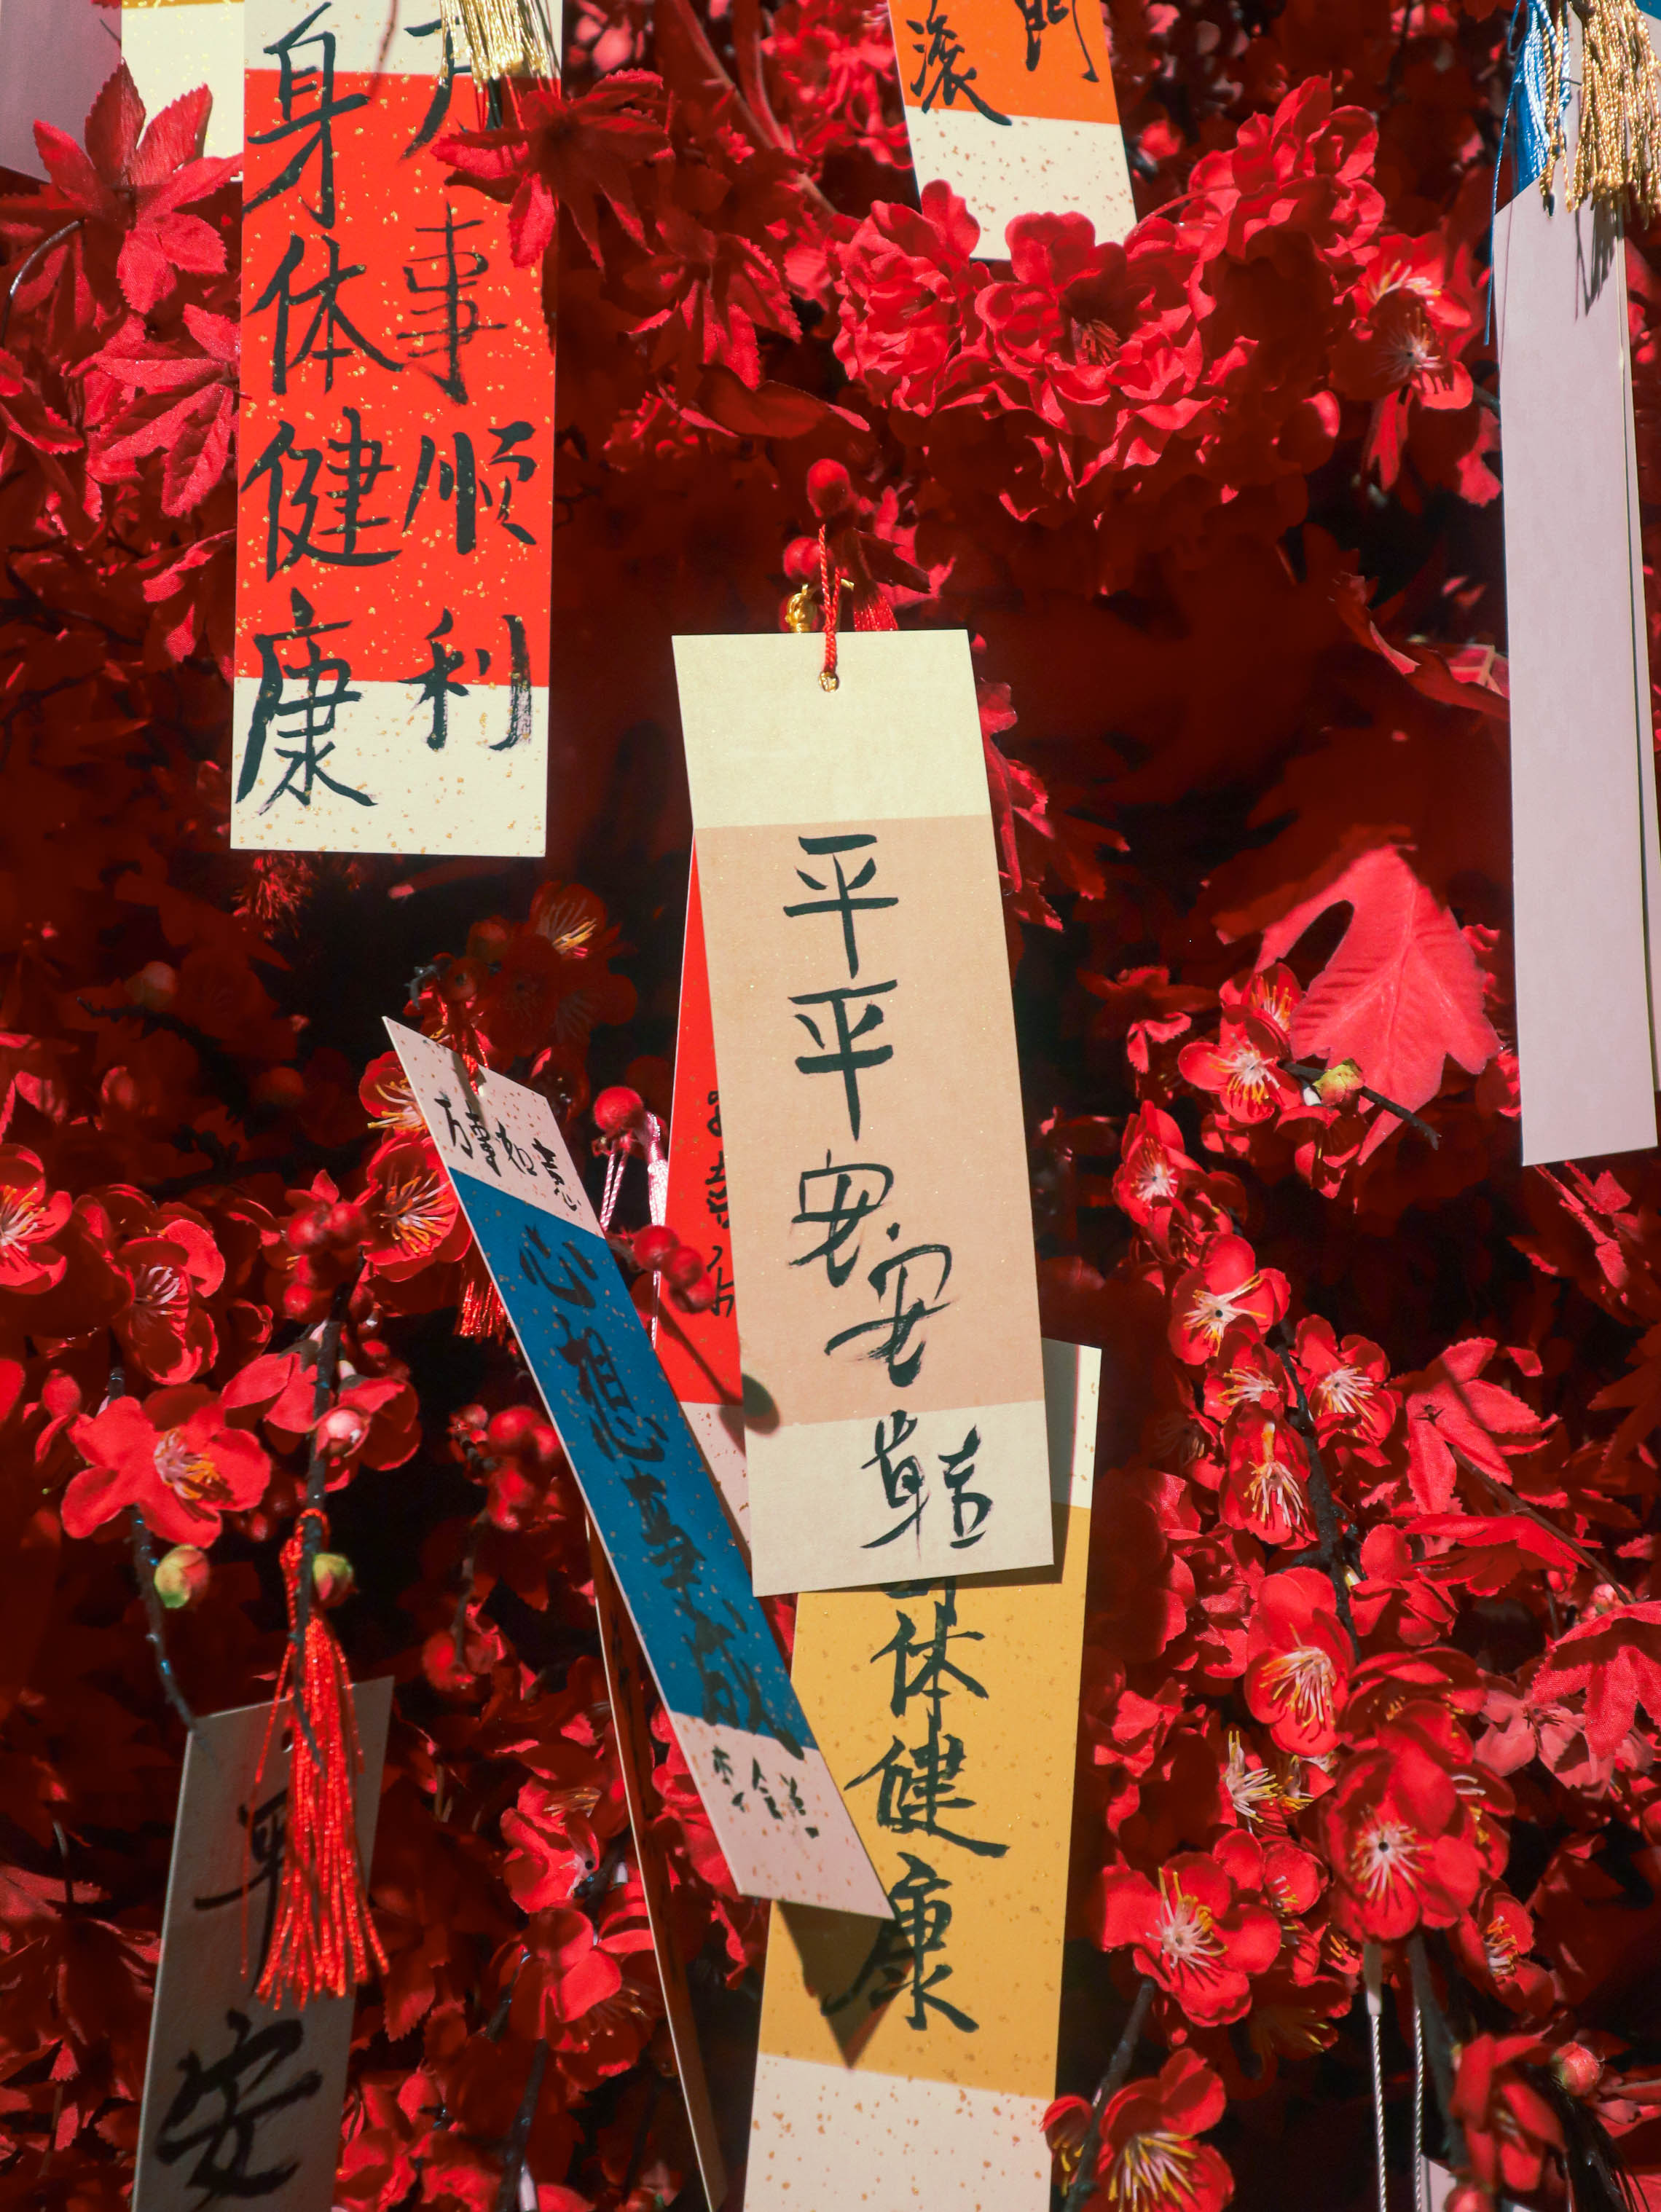 事順利
身体健康
滚
門
平平安安
万事如意
心想事成
体健康
平安